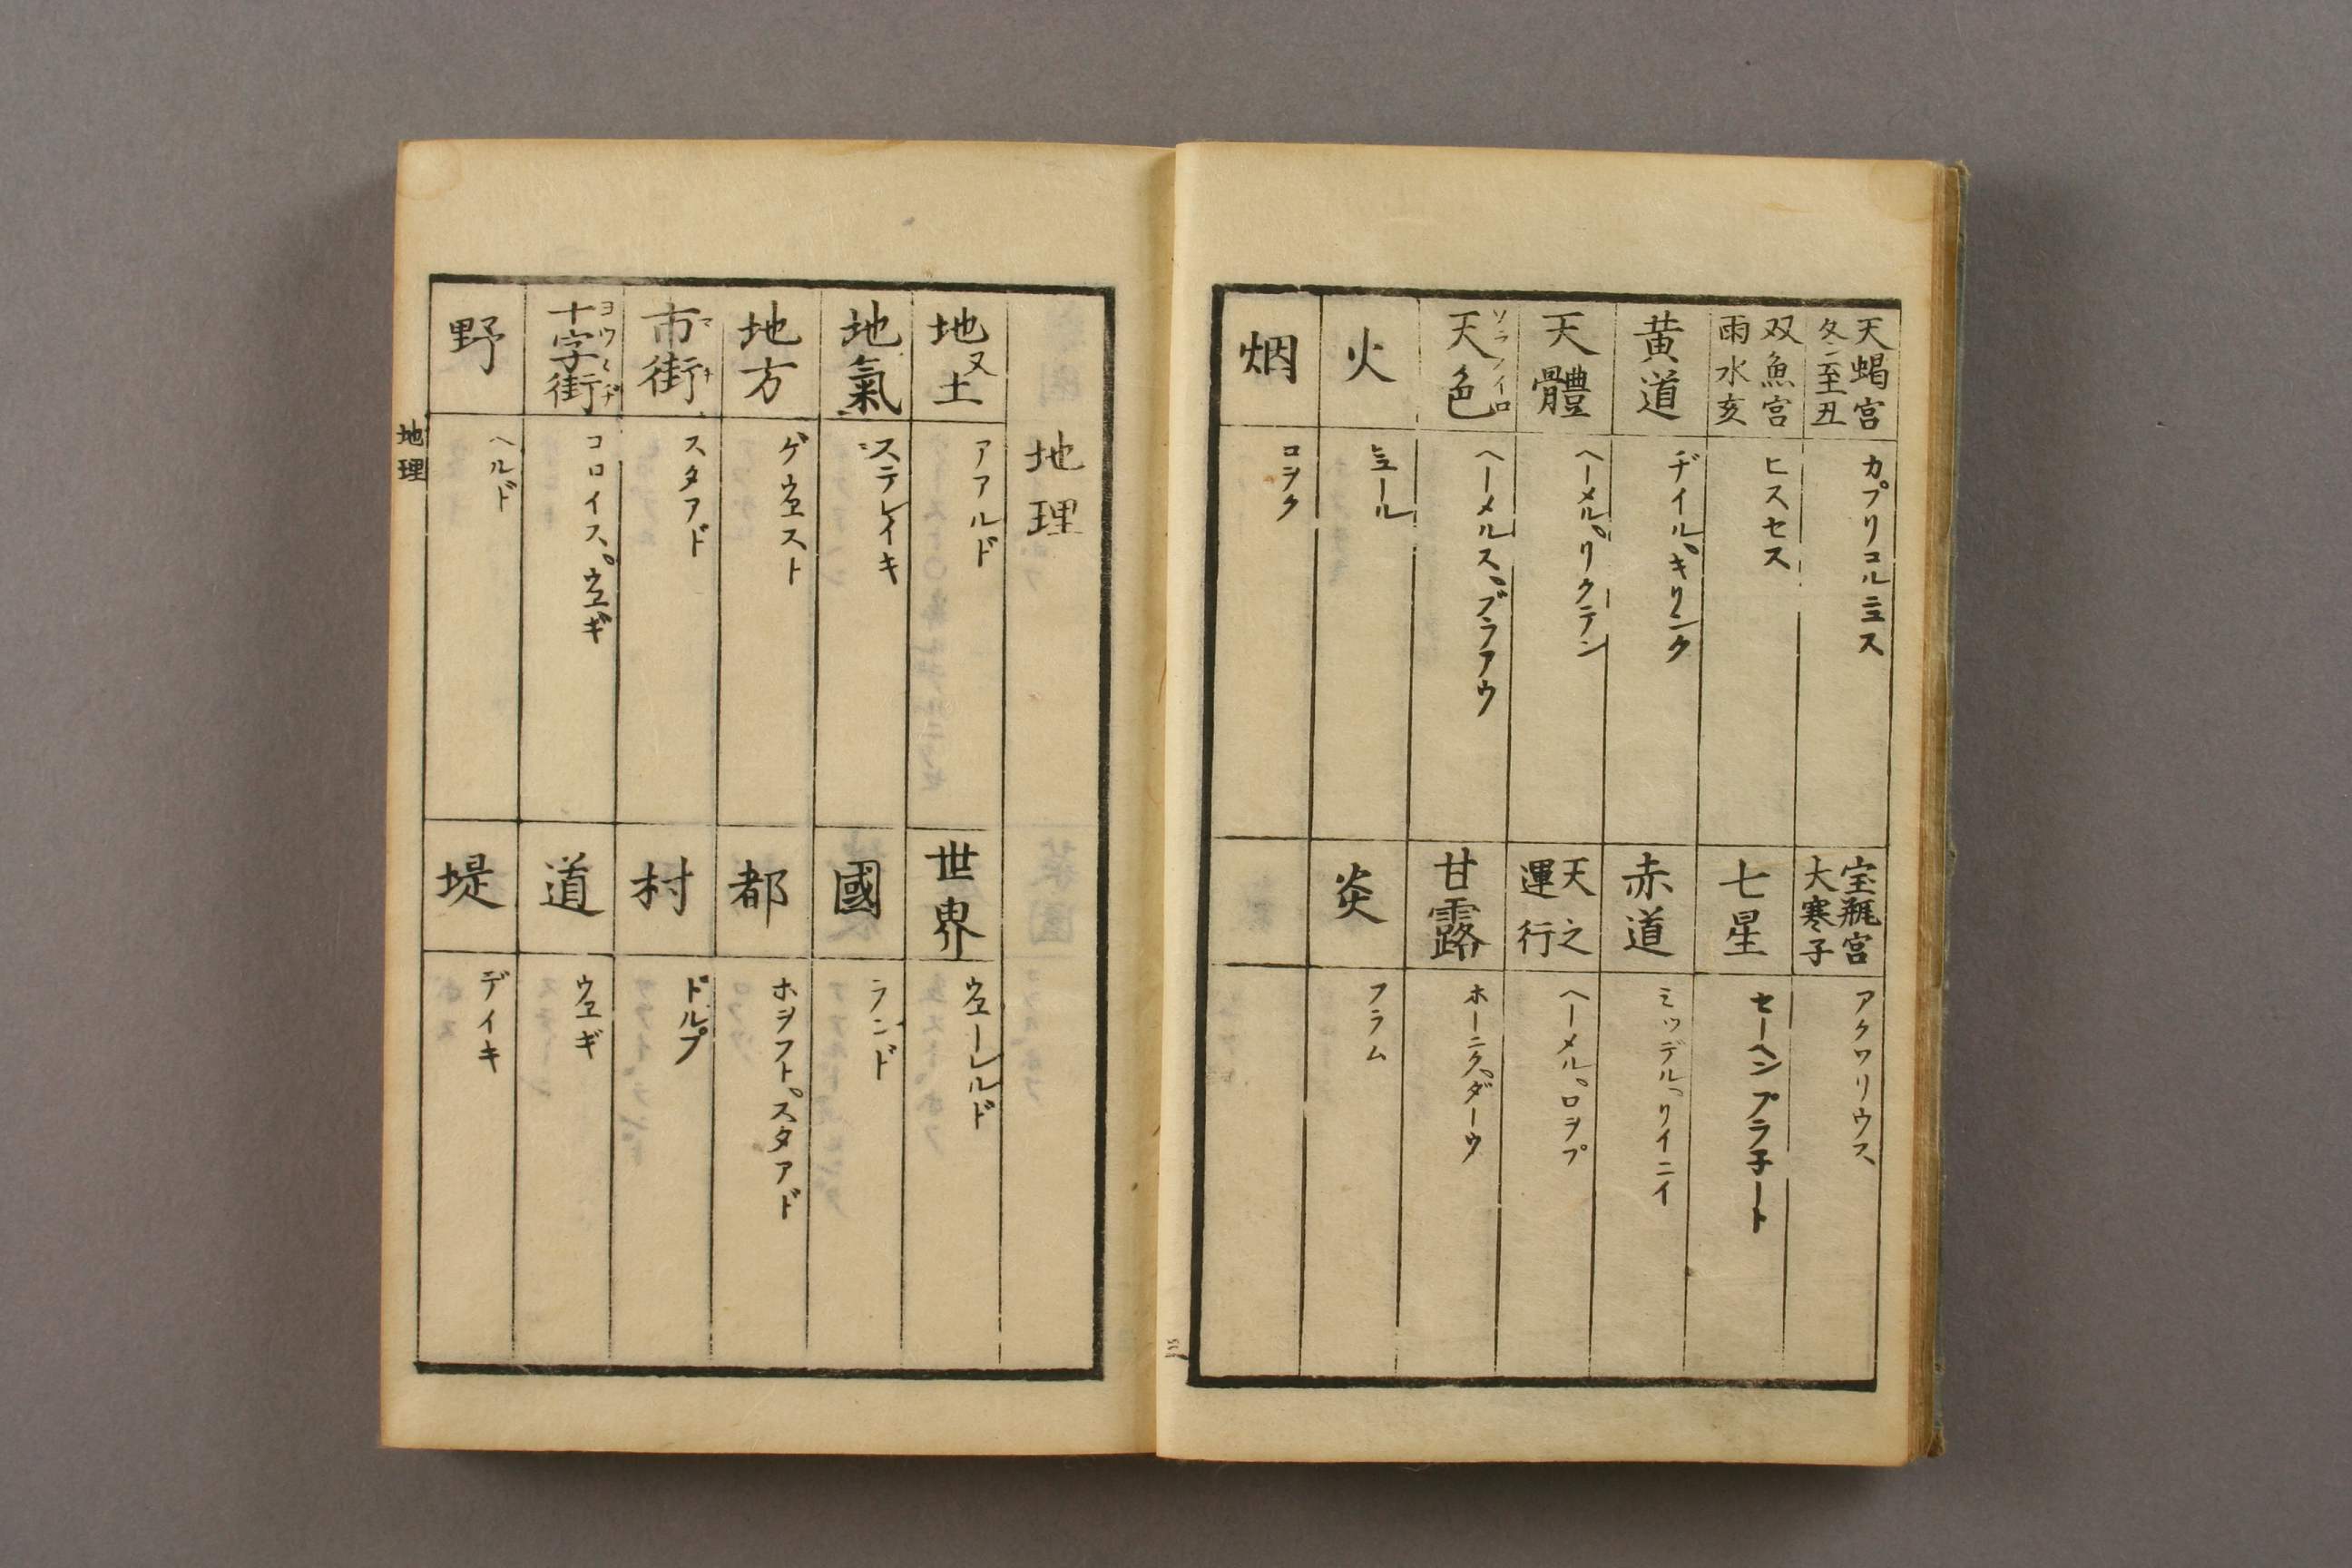 天蝎宮
冬至丑
カプリコルニュス
双魚宮
雨水亥
ヒスセス
黄道
ヂイル゜キリンク
天體
ヘーメル゜リクテン
天色
ソラノイロ
ヘーメルス゜ブラアウ
火
ヒュール
烟
ロヲク
宝瓶宮
大寒子
アクワリウス
七星
セーヘンプラ子ート
赤道
ミッデル゜リイニイ
天之
運行
ヘーメル゜ロヲプ
甘露
ホーニク゜ダーウ
炎
フラム
地理
地又土
アアルド
地氣
ステレイキ
地方
ゲウエスト
市街
マチ
スタアド
十字街
ヨツツヂ
コロイス゜ウエギ
野
ヘルド
世界
ウエーレルド
國
ランド
都
ホヲフト゜スタアド
村
ドルプ
道
ウエギ
堤
デイキ
地理